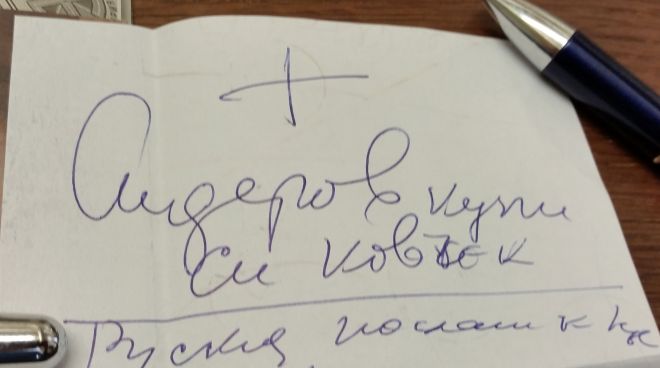 +
Сидеров купи
си ковчек
Руския посланик